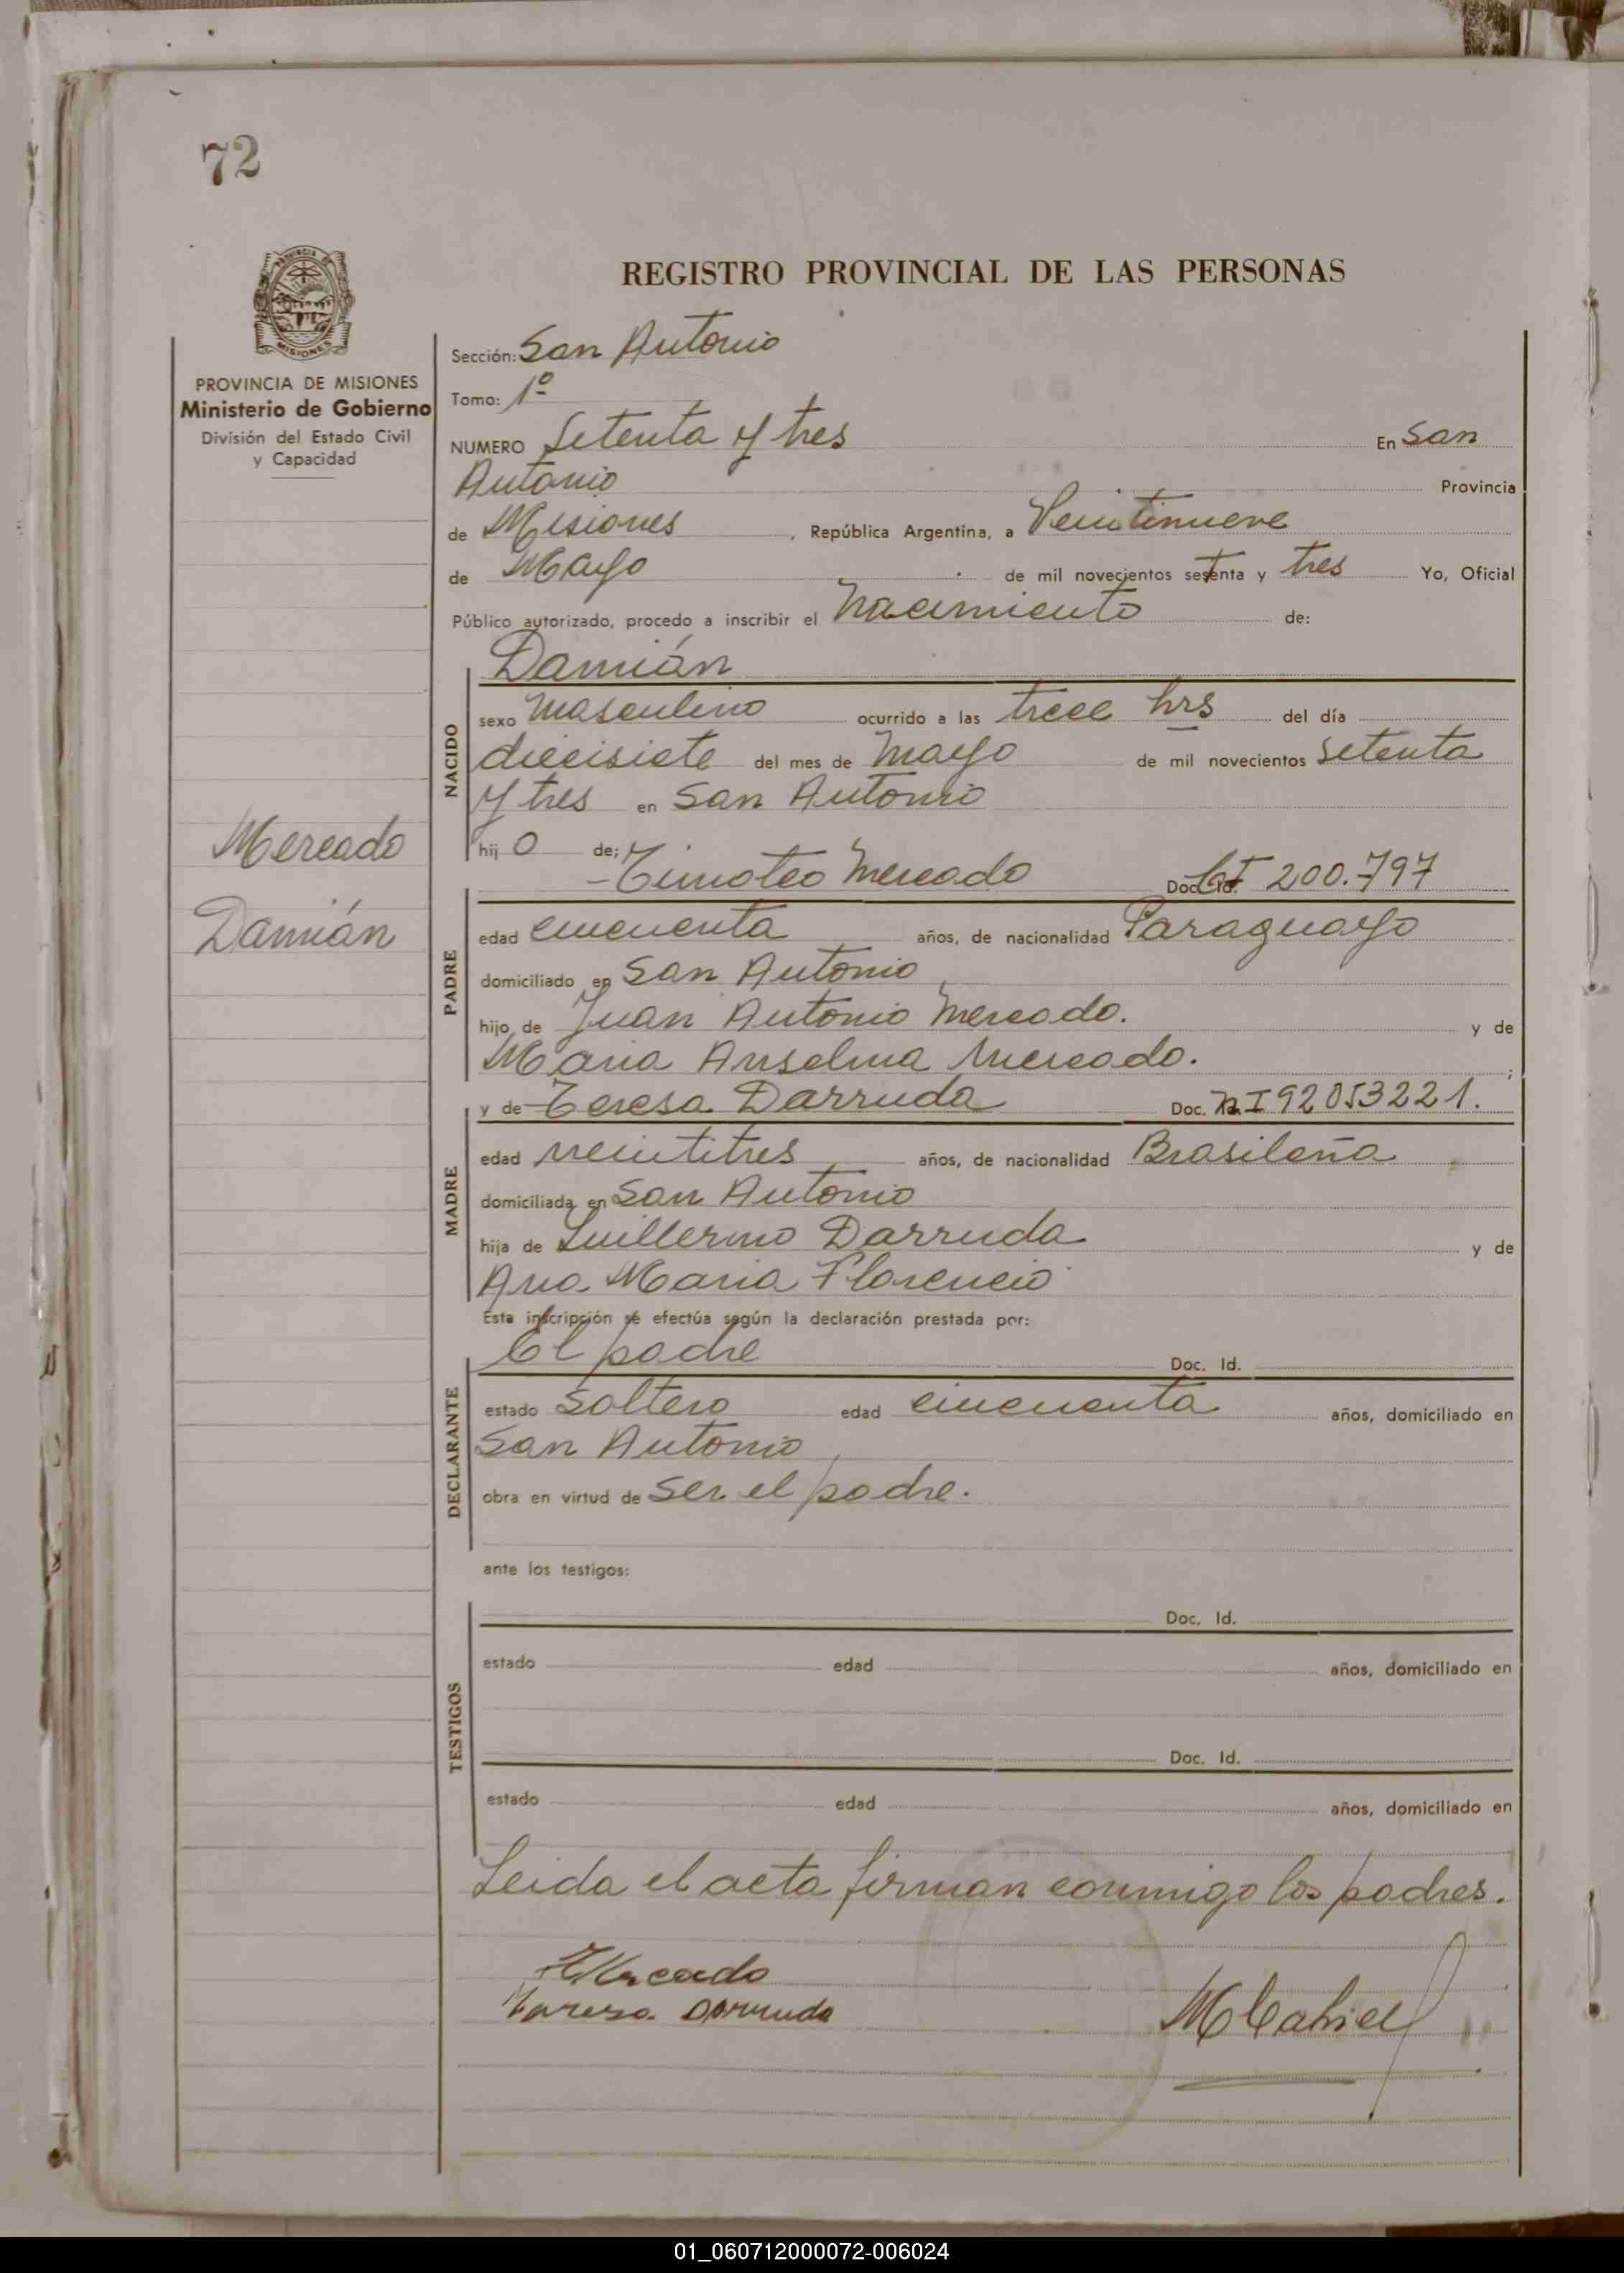 72
PROVINCIA DE
MISIONES
PROVINCIA DE MISIONES
Ministerio de Gobierno
División del Estado Civil
y Capacidad
Mercado
Damián
REGISTRO PROVINCIAL DE LAS PERSONAS
Sección: San Antonio
Tomo: 1º
NUMERO Setenta y tres En San
Antonio Provincia
de Misiones, República Argentina, a Veintinueve
de Mayo de mil novecientos setenta y tres Yo, Oficial
Público autorizado, procedo a inscribir el Nacimiento de:
Damián
NACIDO
sexo Masculino ocurrido a las trece hrs del día
diecisiete del mes de Mayo de mil novecientos setenta
y tres en San Antonio
hijo de:
- Timoteo Mercado Doc. Id. CI 200.797
PADRE
edad cincuenta años, de nacionalidad Paraguayo
domiciliado en San Antonio
hijo de Juan Antonio Mercado. y de
Maria Anselma Mercado. ;
y de - Teresa Darruda Doc. Id. NI 92053221.
MADRE
edad veintitres años, de nacionalidad Brasileña
domiciliada en San Antonio
hija de Guillermo Darruda y de
Ana Maria Florencio
Esta inscripción se efectúa según la declaración prestada por:
El padre Doc. Id.
DECLARANTE
estado Soltero edad cincuenta años, domiciliado en
San Antonio
obra en virtud de Ser el padre.
ante los testigos:
Doc. Id.
TESTIGOS
estado edad años, domiciliado en
Doc. Id.
estado edad años, domiciliado en
Leida el acta firman conmigo los padres.
Mercado
Teresa Darruda
01_060712000072-006024